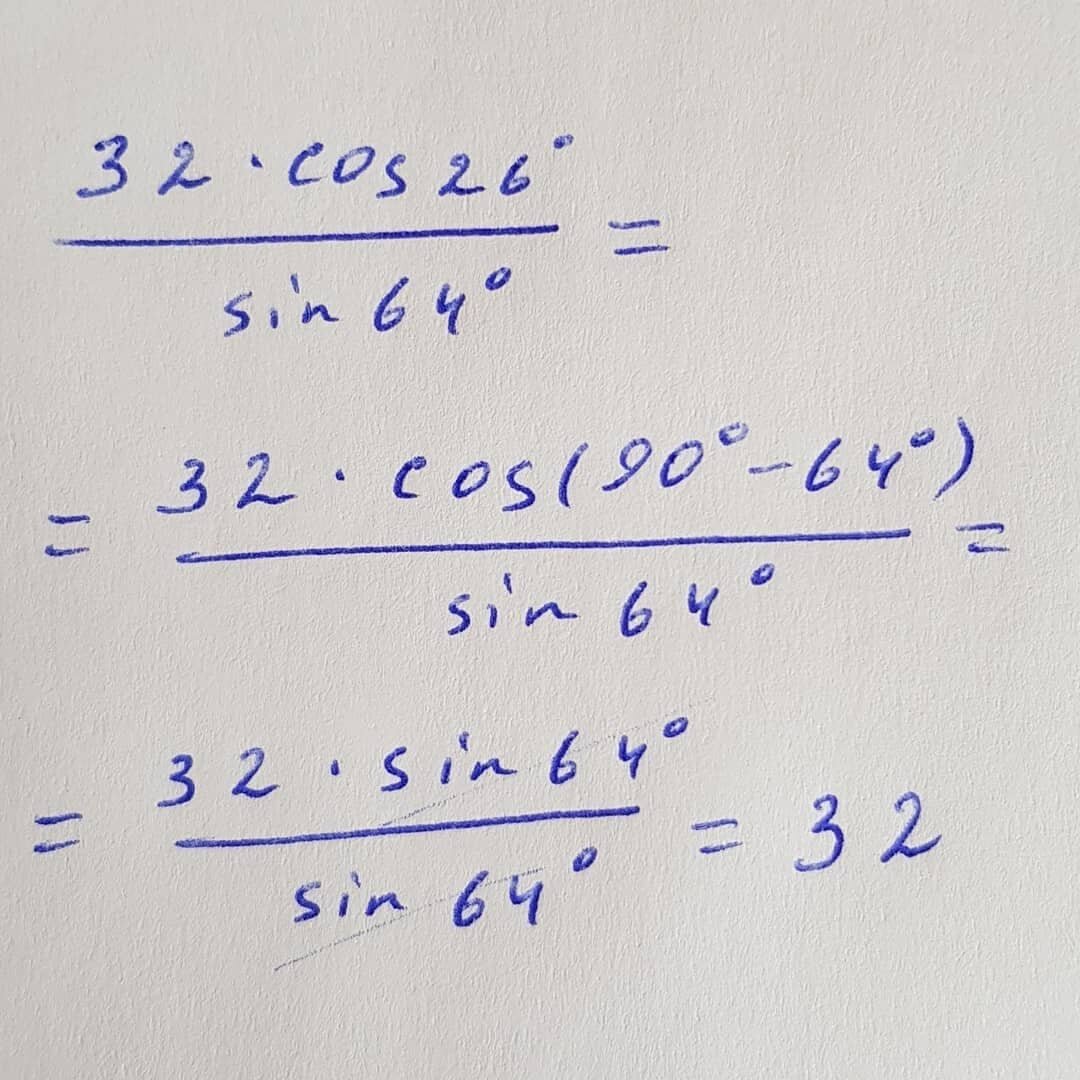 32 · cos 26°
sin 64° =
= 32 · cos(90° - 64°)
sin 64° =
= 32 · sin 64°
sin 64° = 32